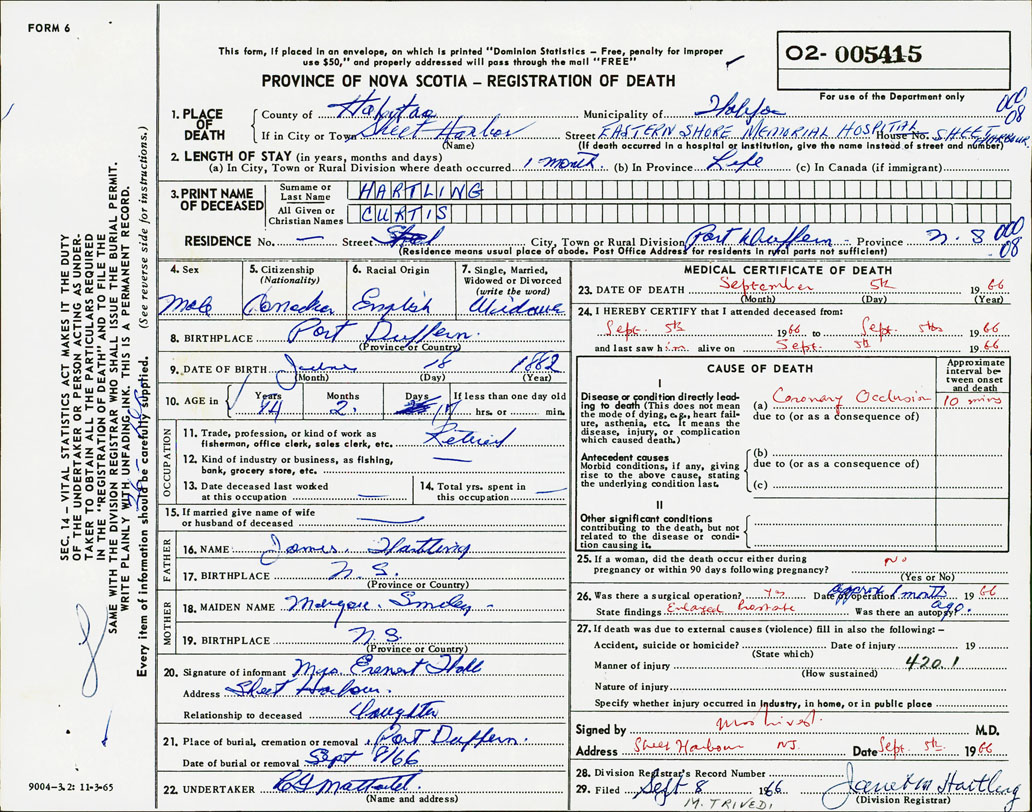 FORM 6
This form, if placed in an envelope, on which is printed "Dominion Statistics – Free, penalty for improper
use $50," and properly addressed will pass through the mail "FREE"
O2- 005415
PROVINCE OF NOVA SCOTIA – REGISTRATION OF DEATH
For use of the Department only
000
08
1. PLACE OF DEATH
County of Halifax Municipality of Halifax
If in City or Town Sheet Harbor Street EASTERN SHORE MEMORIAL HOSPITAL House No. SHEET HARBOUR
(Name) (If death occurred in a hospital or institution, give the name instead of street and number)
2. LENGTH OF STAY (in years, months and days)
(a) In City, Town or Rural Division where death occurred 1 month (b) In Province Life (c) In Canada (if immigrant)
3. PRINT NAME OF DECEASED
Surname or Last Name HARTLING
All Given or Christian Names CURTIS
RESIDENCE No. — Street City, Town or Rural Division Port Dufferin - Province N.S
000
08
(Residence means usual place of abode. Post Office Address for residents in rural parts not sufficient)
4. Sex
Male
5. Citizenship (Nationality)
Canadian
6. Racial Origin
English
7. Single, Married, Widowed or Divorced (write the word)
Widowed
8. BIRTHPLACE Port Dufferin.
(Province or Country)
9. DATE OF BIRTH June 18 1882
(Month) (Day) (Year)
10. AGE in Years 84 Months 2. Days 17 If less than one day
hrs. or min.
OCCUPATION
11. Trade, profession, or kind of work as fisherman, office clerk, sales clerk, etc. Retired
12. Kind of industry or business, as fishing, bank, grocery store, etc. —
13. Date deceased last worked at this occupation —
14. Total yrs. spent in this occupation —
15. If married give name of wife or husband of deceased —
FATHER
16. NAME James Hartling
17. BIRTHPLACE N.S.
(Province or Country)
MOTHER
18. MAIDEN NAME Smiley -
19. BIRTHPLACE N.S.
(Province or Country)
20. Signature of informant Mrs. Hall
Address Sheet Harbour.
Relationship to deceased Daughter
21. Place of burial, cremation or removal Port Dufferin.
Date of burial or removal Sept 8/66
22. UNDERTAKER
(Name and address)
MEDICAL CERTIFICATE OF DEATH
23. DATE OF DEATH September 5th 1966
(Month) (Day) (Year)
24. I HEREBY CERTIFY that I attended deceased from:
Sept. 5th 1966 to Sept. 5th 1966
and last saw him alive on Sept. 5th 1966
CAUSE OF DEATH
Approximate interval between onset and death
I
Disease or condition directly leading to death (This does not mean the mode of dying, e.g., heart failure, asthenia, etc. It means the disease, injury, or complication which caused death.)
(a) Coronary Occlusion 10 mins
due to (or as a consequence of)
Antecedent causes
Morbid conditions, if any, giving rise to the above cause, stating the underlying condition last.
(b)
due to (or as a consequence of)
(c)
II
Other significant conditions contributing to the death, but not related to the disease or condition causing it.
25. If a woman, did the death occur either during pregnancy or within 90 days following pregnancy? No
(Yes or No)
26. Was there a surgical operation? Yes Date of operation approx 1 month ago. 1966
State findings Enlarged Prostate Was there an autopsy?
27. If death was due to external causes (violence) fill in also the following: –
Accident, suicide or homicide? Date of injury 19
(State which)
Manner of injury 420.1
(How sustained)
Nature of injury
Specify whether injury occurred in industry, in home, or in public place
Signed by M.D.
Address Sheet Harbour NS Date Sept. 5th 1966
28. Division Registrar's Record Number
29. Filed Sept 8 1966 Janet M Hartling
(Division Registrar)
M. TRIVEDI
SEC. 14 – VITAL STATISTICS ACT MAKES IT THE DUTY
OF THE UNDERTAKER OR PERSON ACTING AS UNDER-
TAKER TO OBTAIN ALL THE PARTICULARS REQUIRED
IN THE "REGISTRATION OF DEATH" AND TO FILE THE
SAME WITH THE DIVISION REGISTRAR WHO SHALL ISSUE THE BURIAL PERMIT.
WRITE PLAINLY WITH UNFADING INK. THIS IS A PERMANENT RECORD.
Every item of information should be carefully supplied. (See reverse side for instructions.)
9004-3.2: 11-3-65